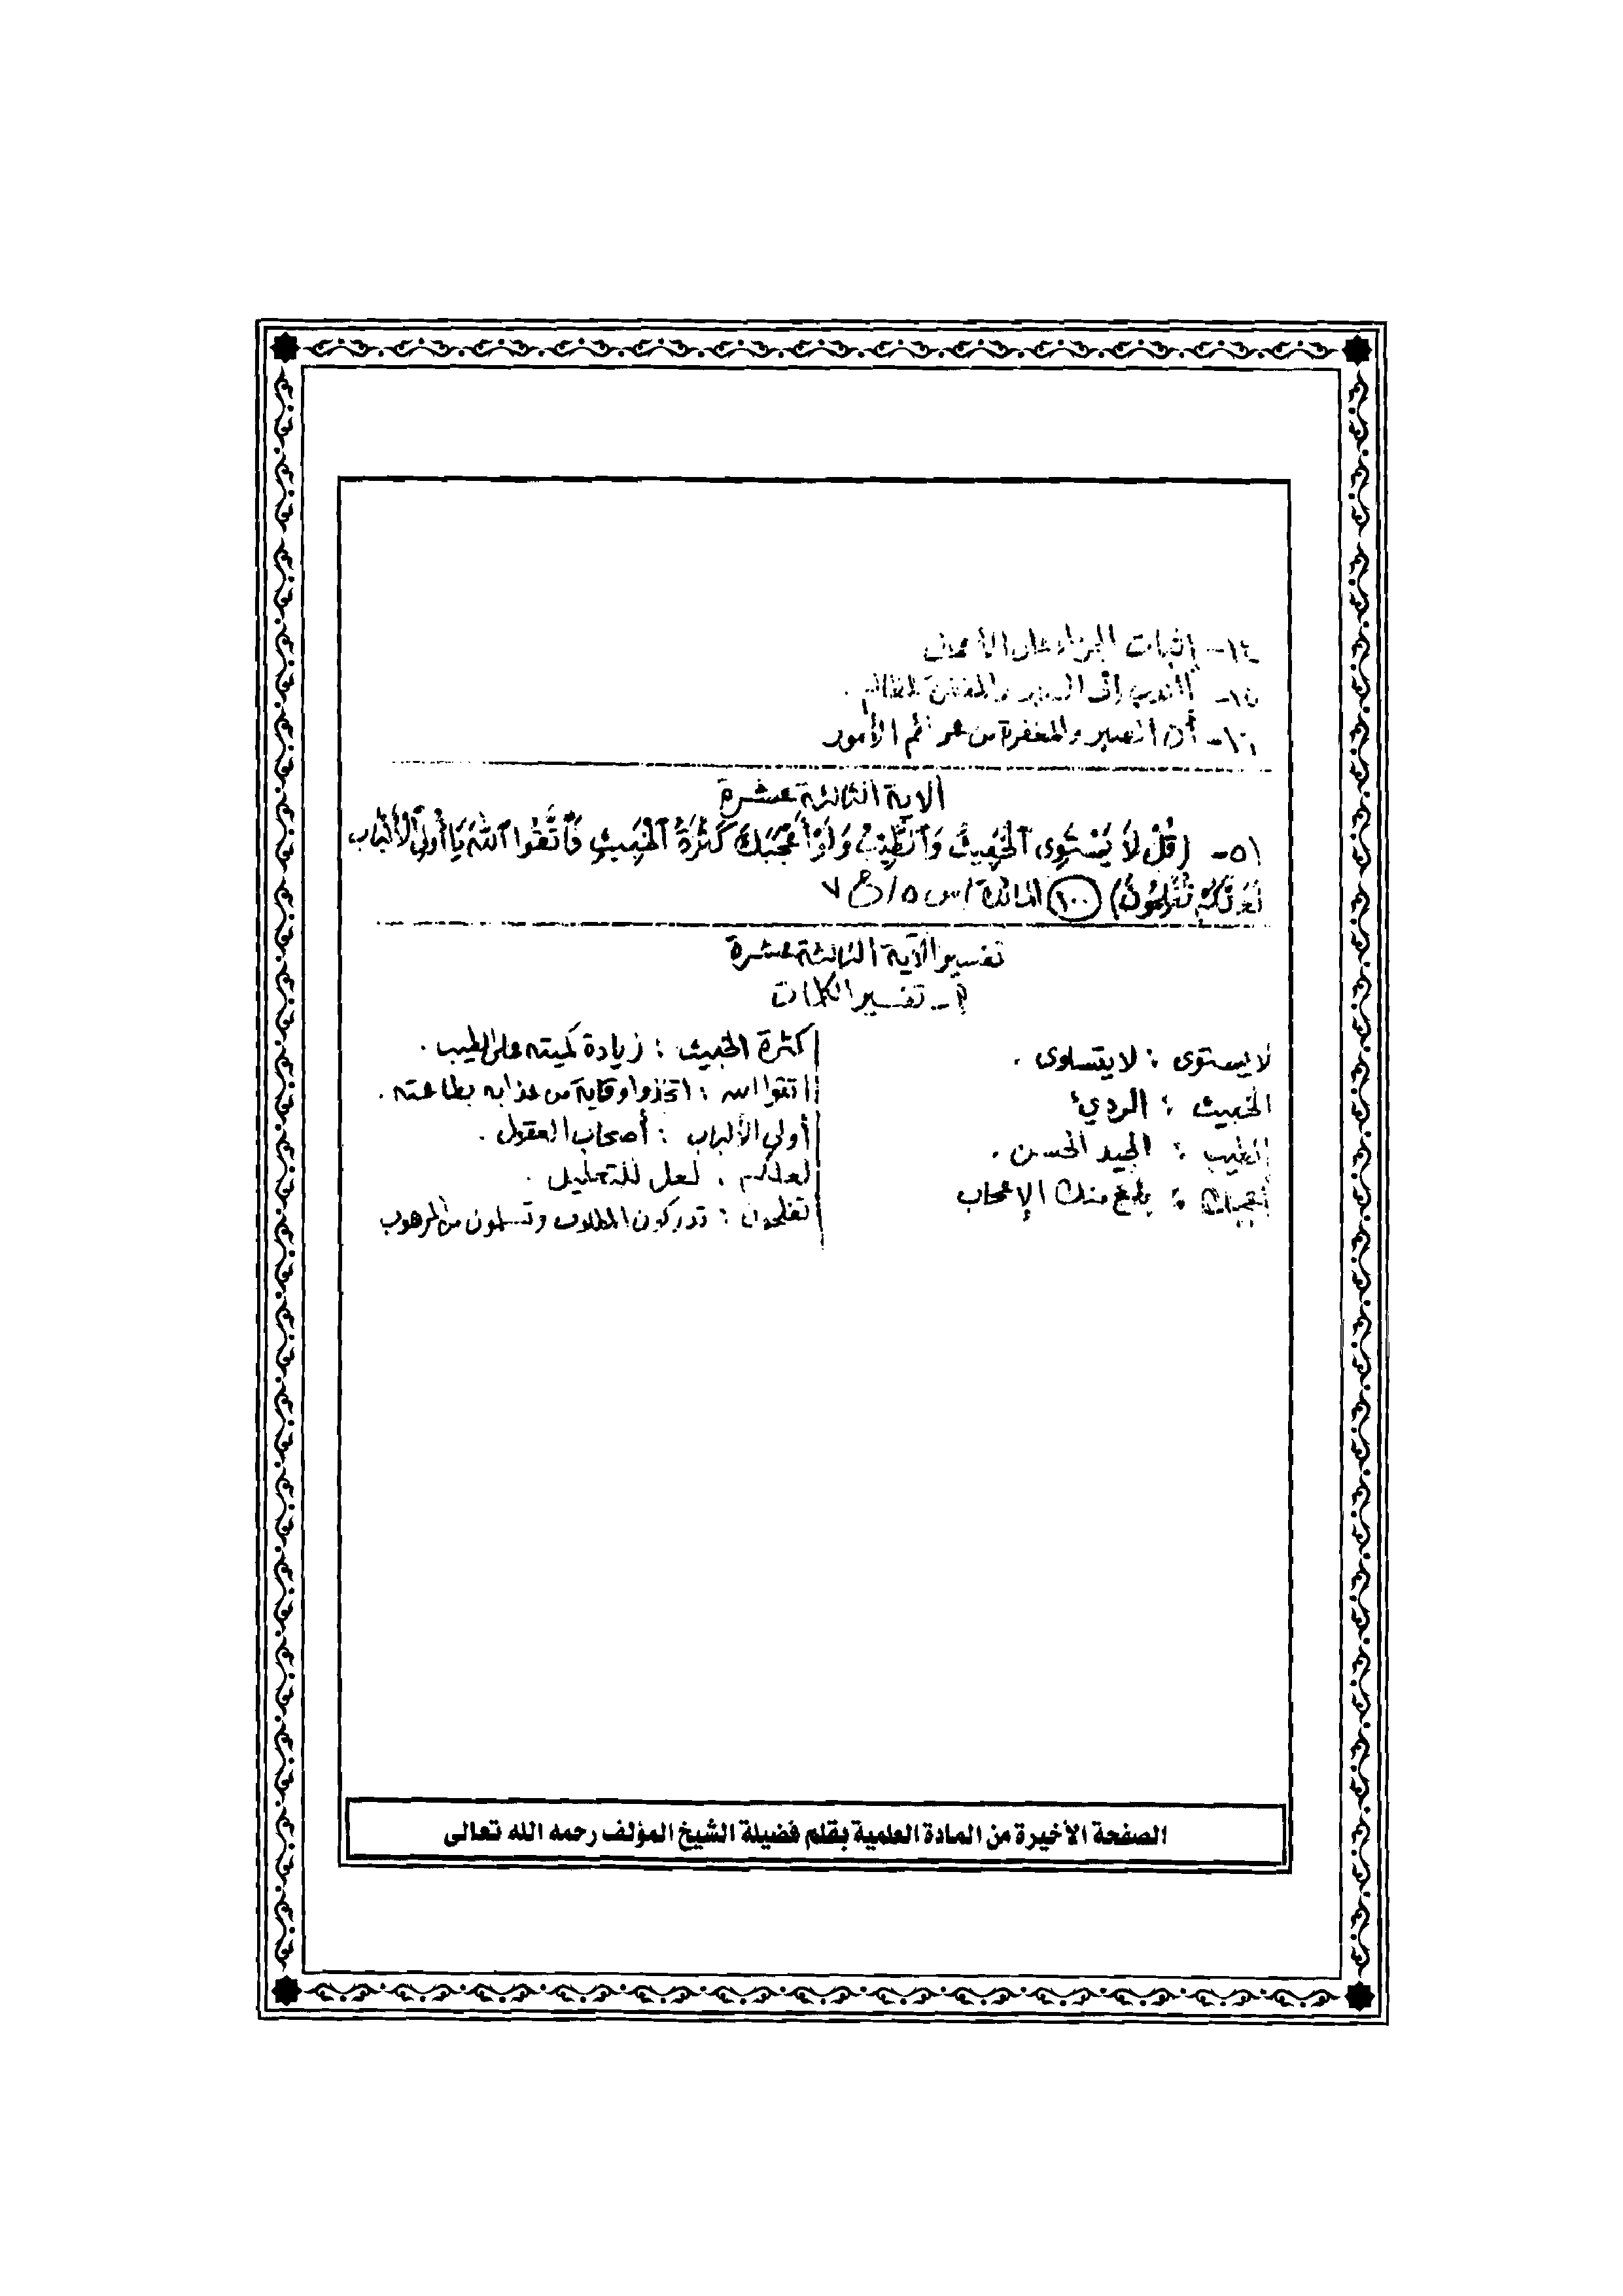 ١٤- إثبات الجزاء على الأعمال
١٥- الندب إلى الصبر والمغفرة للظالم.
١٦- أن الصبر والمغفرة من عزائم الأمور
الآية الثالثة عشرة
٥١- (قُلْ لَا يَسْتَوِى ٱلْخَبِيثُ وَٱلطَّيِّبُ وَلَوْ أَعْجَبَكَ كَثْرَةُ ٱلْخَبِيثِ فَٱتَّقُوا ٱللَّهَ يَا أُولِى ٱلْأَلْبَابِ
لَعَلَّكُمْ تُفْلِحُونَ) (١٠٠) المائدة / س ٥ / ج ٧
تفسير الآية الثالثة عشرة
أ- تفسير الكلمات
لا يستوى : لا يتساوى .
الخبيث : الرديء
الطيب : الجيد الحسن .
أعجبك : بلغ منك الإعجاب
كثرة الخبيث : زيادة كميته على الطيب .
اتقوا الله : اتخذوا وقاية من عذابه بطاعته .
أولي الألباب : أصحاب العقول .
لعلكم : لعل للتعليل .
تفلحون : تدركون المطلوب وتسلمون من المرهوب
الصفحة الأخيرة من المادة العلمية بقلم فضيلة الشيخ المؤلف رحمه الله تعالى